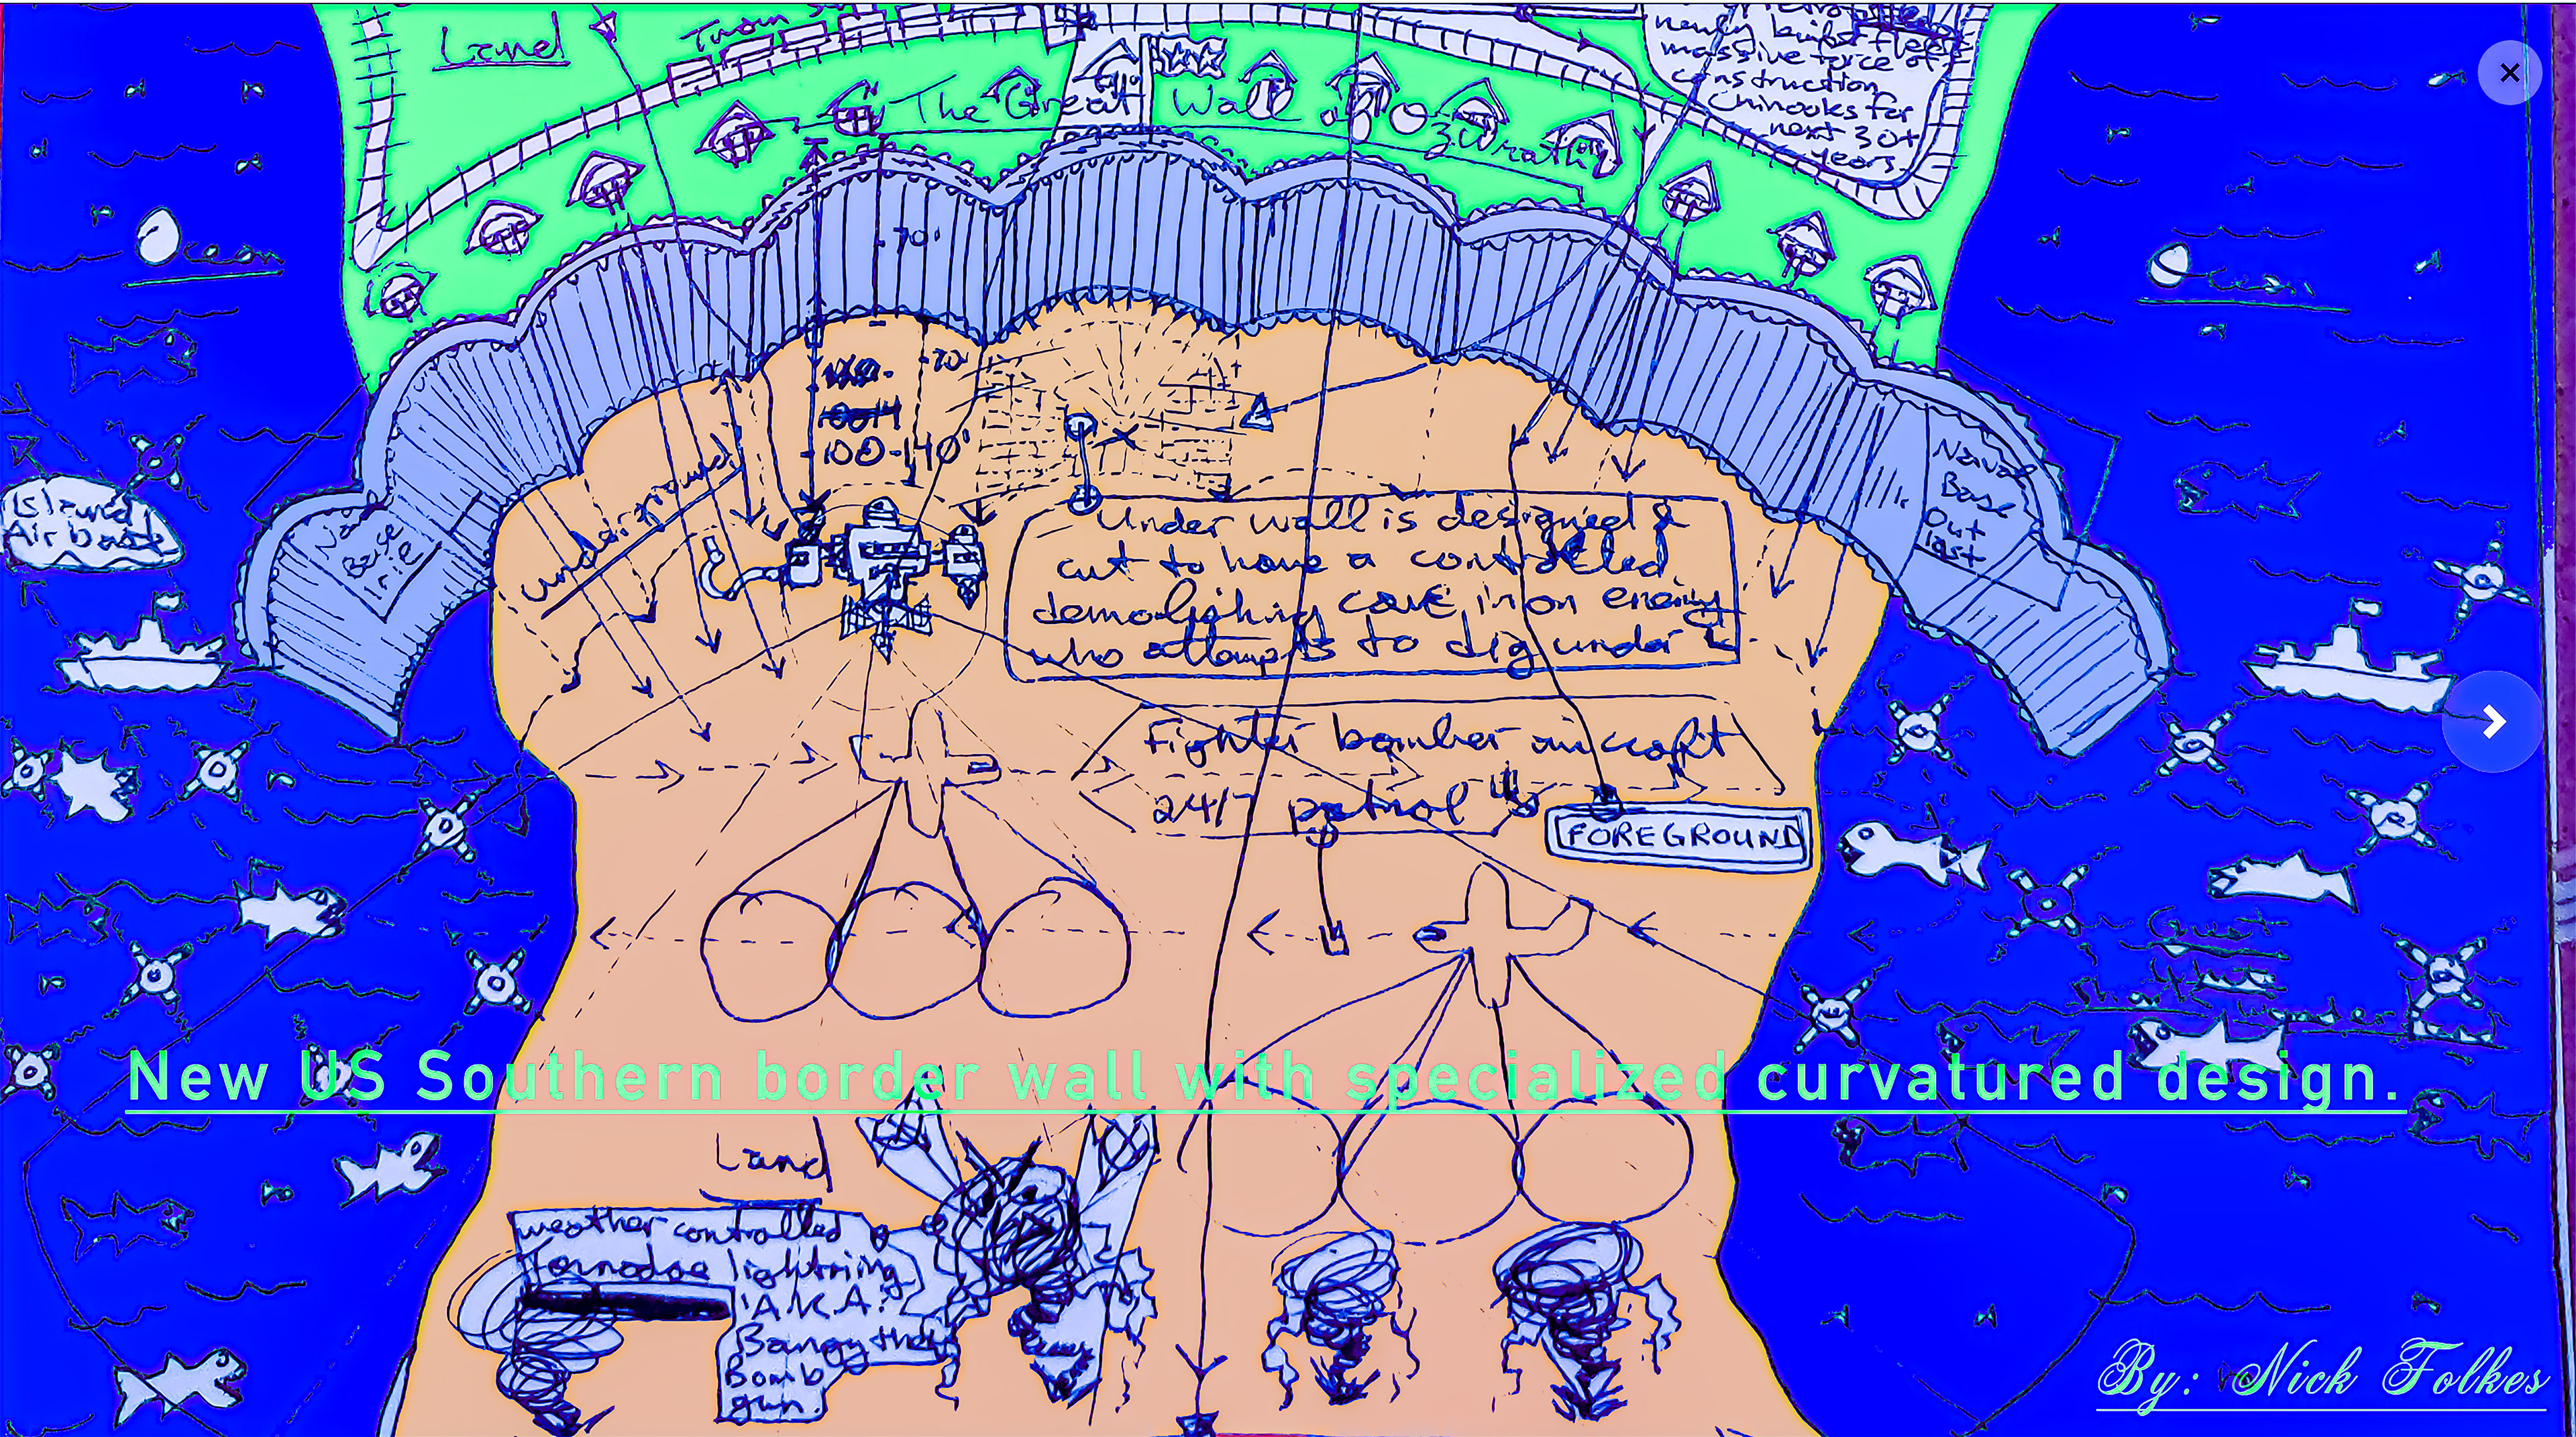 Land
Train
newly built fleet
massive force of
construction
Chinooks for
next 30+
years
The Great Wall of Wrath
Ocean
Ocean
70'
-70'
100-140'
underground
Island
Air base
Naval
Base
Out
last
Base
Under wall is designed &
cut to have a controlled
demolishing cave in on enemy
who attempts to dig under
Fighter bomber aircraft
24/7 patrol
FOREGROUND
Great
White
Sharks
New US Southern border wall with specialized curvatured design.
Land
weather controlled
Tornados lightning
A.K.A.
Bomb
gun.
By: Nick Folkes